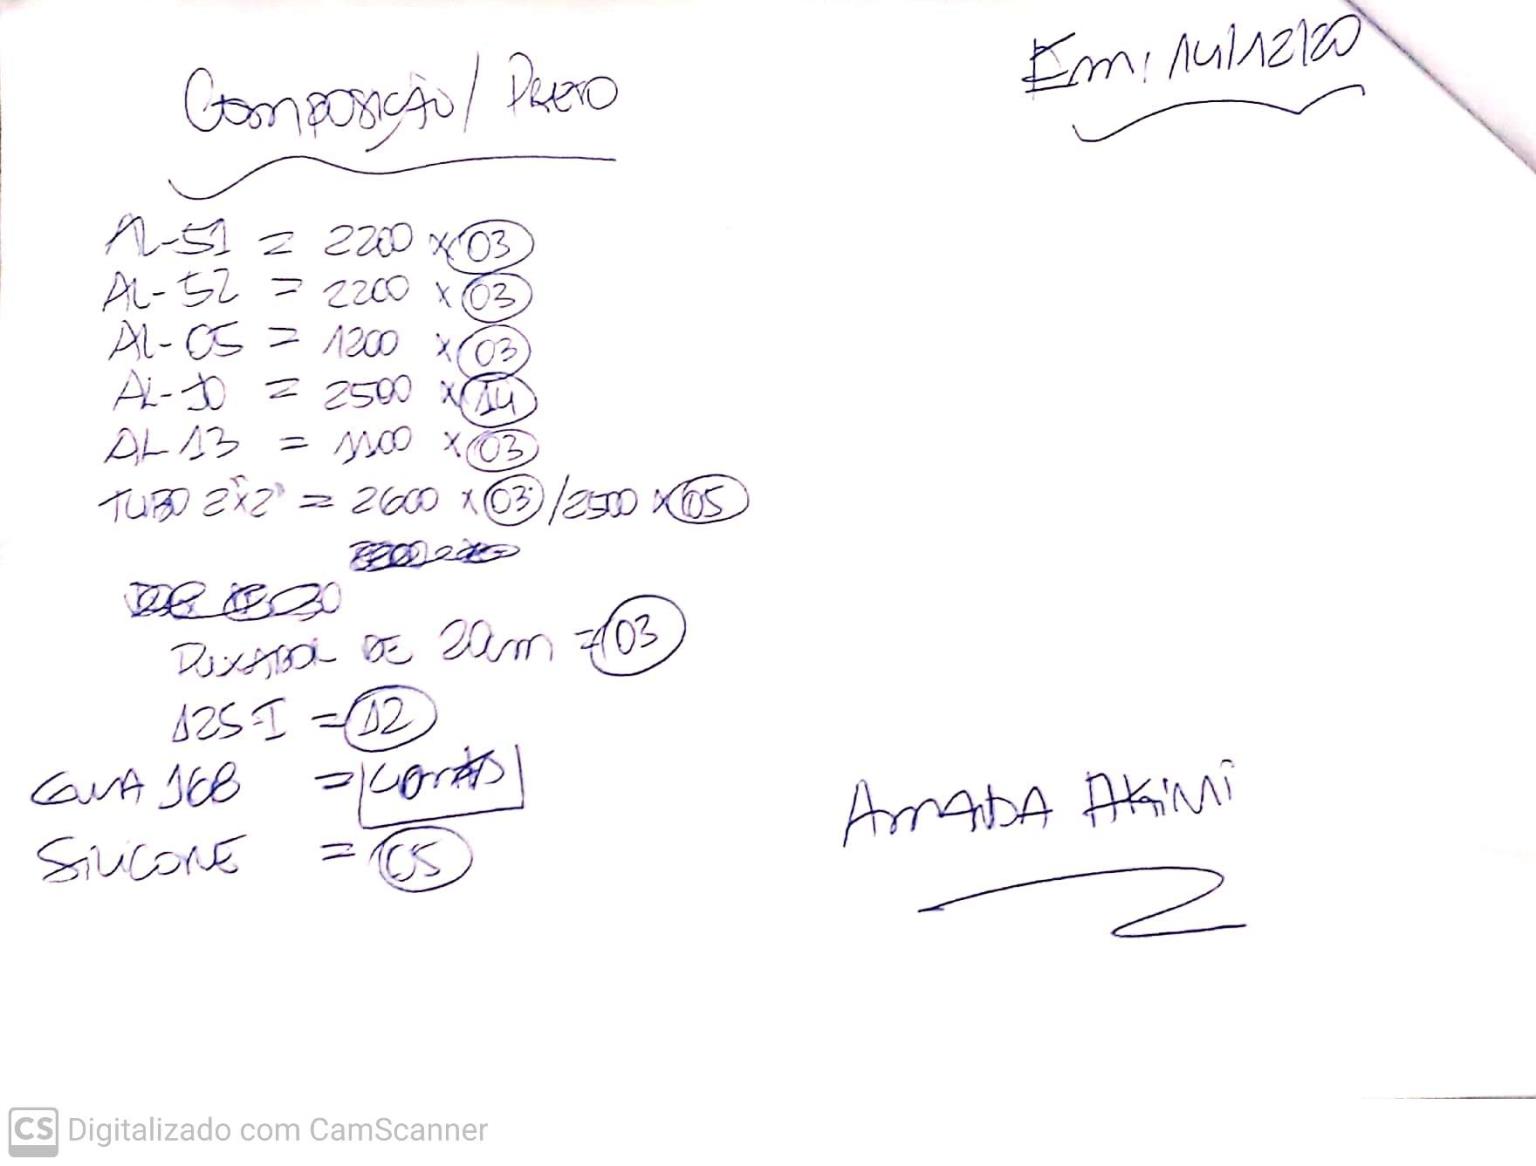 Composição/ Preto
Em: 14/12/20
AL-51 = 2200 x 03
AL-52 = 2200 x 03
AL-05 = 1200 x 03
AL-10 = 2500 x 14
AL 13 = 1100 x 03
TUBO 2"x2" = 2600 x 03 / 2500 x 05
PUXADOR DE 20cm = 03
125-I = 12
GUIA 168 =
SILICONE = 05
AMANDA AKIMI
CS Digitalizado com CamScanner